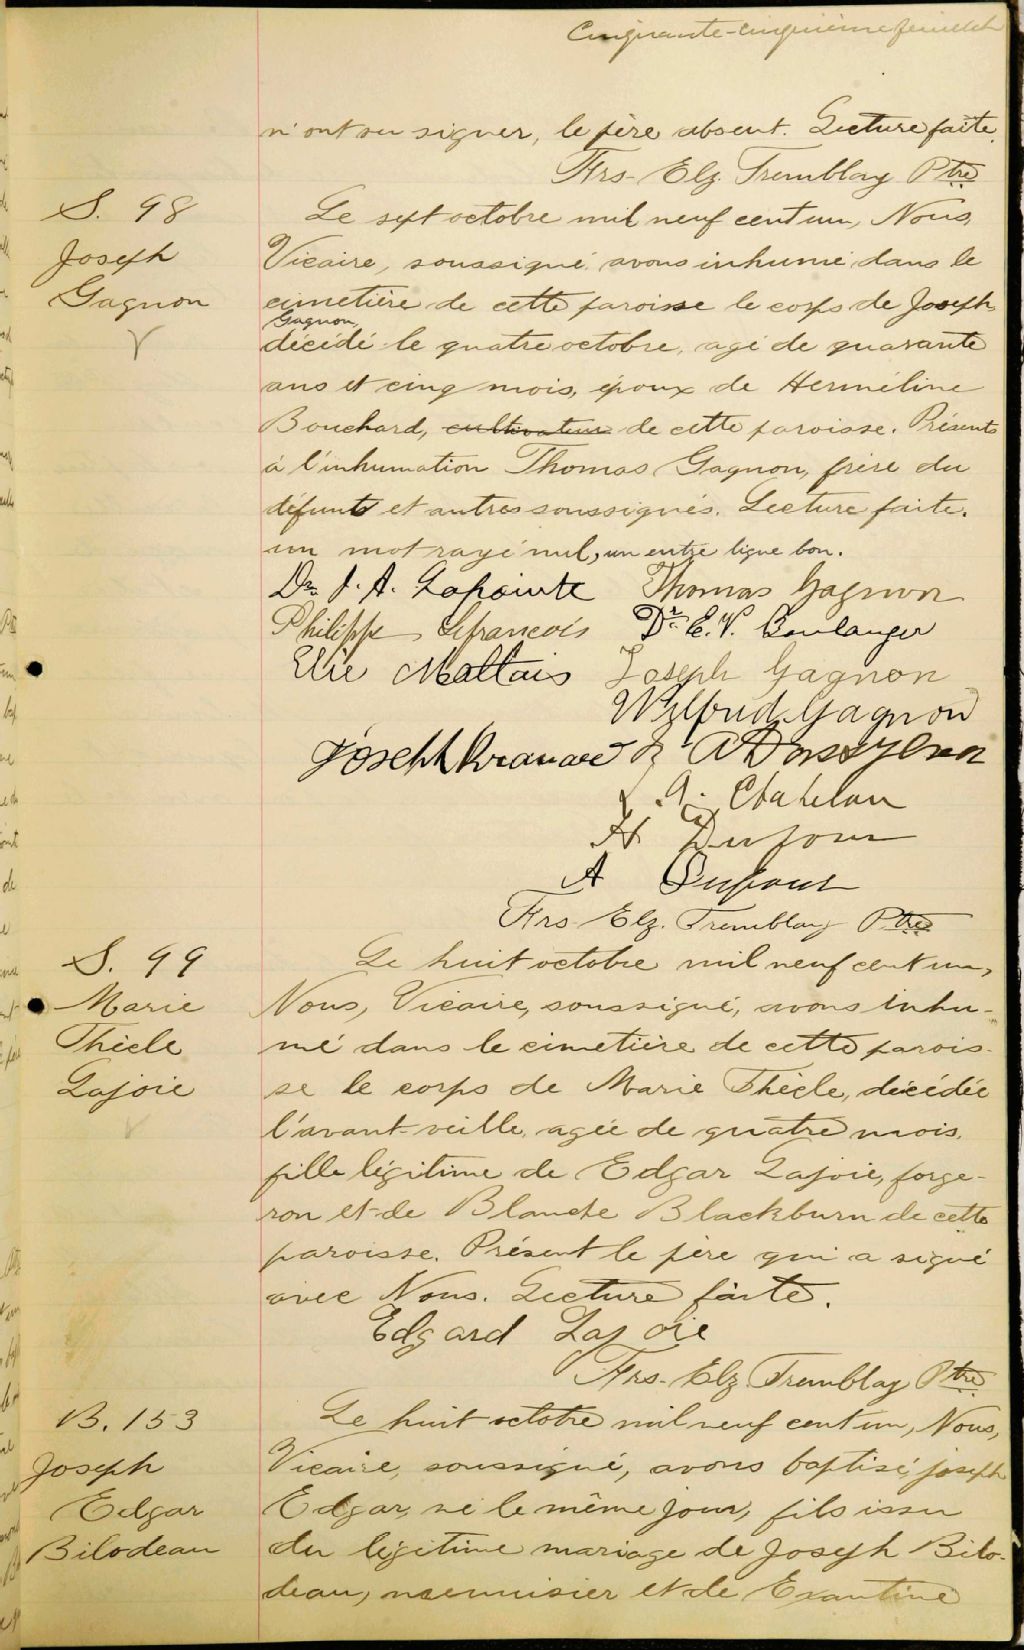 Cinquante-cinquième feuillet
n'ont su signer, le père absent. Lecture faite.
Frs Elz. Tremblay Ptre
S. 98
Joseph
Gagnon
Le sept octobre mil neuf cent un, Nous,
Vicaire, soussigné avons inhumé dans le
cimetière de cette paroisse le corps de Joseph
Gagnon,
décédé le quatre octobre, agé de quarante
ans et cinq mois, époux de Herméline
Bouchard, cultivateur de cette paroisse. Présents
à l'inhumation Thomas Gagnon, frère du
défunt et autres soussignés. Lecture faite.
un mot rayé nul, un entre ligne bon.
Dr. J. A. Lapointe Thomas Gagnon
Philippe Lefrancois Dr. E. V. Boulanger
Elie Maltais Joseph Gagnon
Wilfrid Gagnon
Joseph
H Dufour
A Dufour
Frs Elz. Tremblay Ptre
S. 99
Marie
Thècle
Lajoie
Le huit octobre mil neuf cent un,
Nous, Vicaire, soussigné, avons inhu-
mé dans le cimetière de cette parois-
se le corps de Marie Thècle, décédée
l'avant-veille, agée de quatre mois,
fille légitime de Edgar Lajoie, forge-
ron et de Blanche Blackburn de cette
paroisse. Présent le père qui a signé
avec Nous. Lecture faite.
Edgard Lajoie
Frs. Elz. Tremblay Ptre
B. 153
Joseph
Edgar
Bilodeau
Le huit octobre mil neuf cent un, Nous,
Vicaire, soussigné, avons baptisé joseph
Edgar, né le même jour, fils issu
du légitime mariage de Joseph Bilo-
deau, menuisier et de Exantine